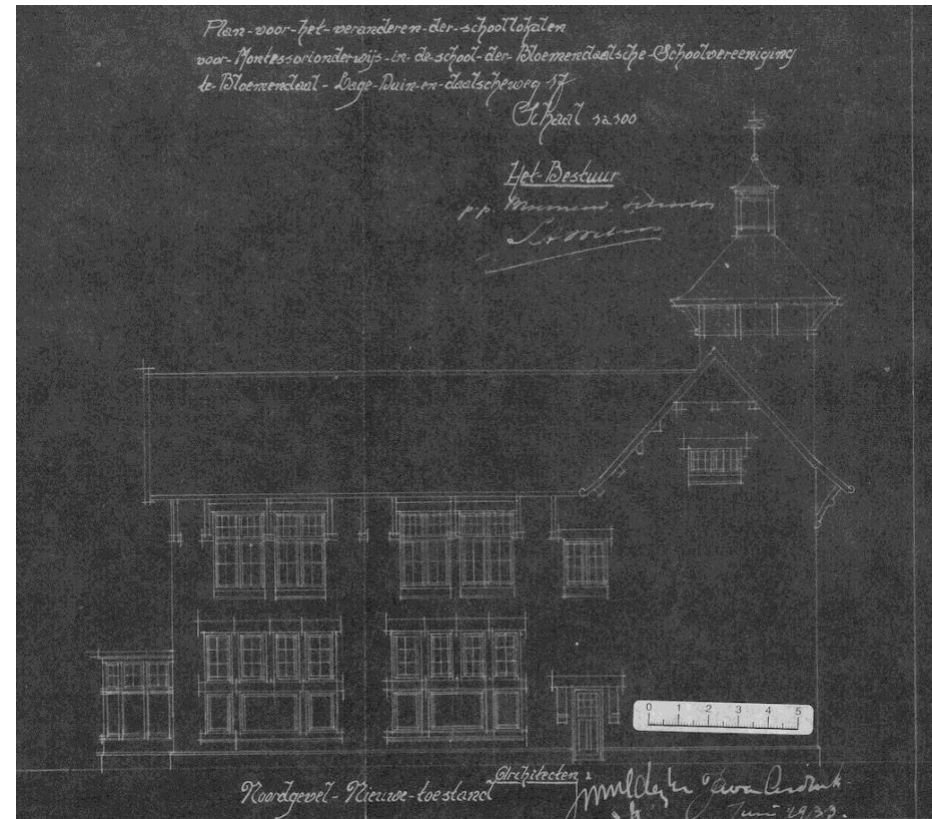 Plan-voor-het-veranderen-der-schoollokalen
voor-Montessorionderwijs-in-de-school-der-Bloemendaalsche-Schoolvereeniging
te-Bloemendaal-Lage-Duin-en-daalscheweg 17
Schaal 1a100
Het-Bestuur
p.p.
0 1 2 3 4 5
Architecten:
Noordgevel-Nieuwe-toestand
Juni 1933.